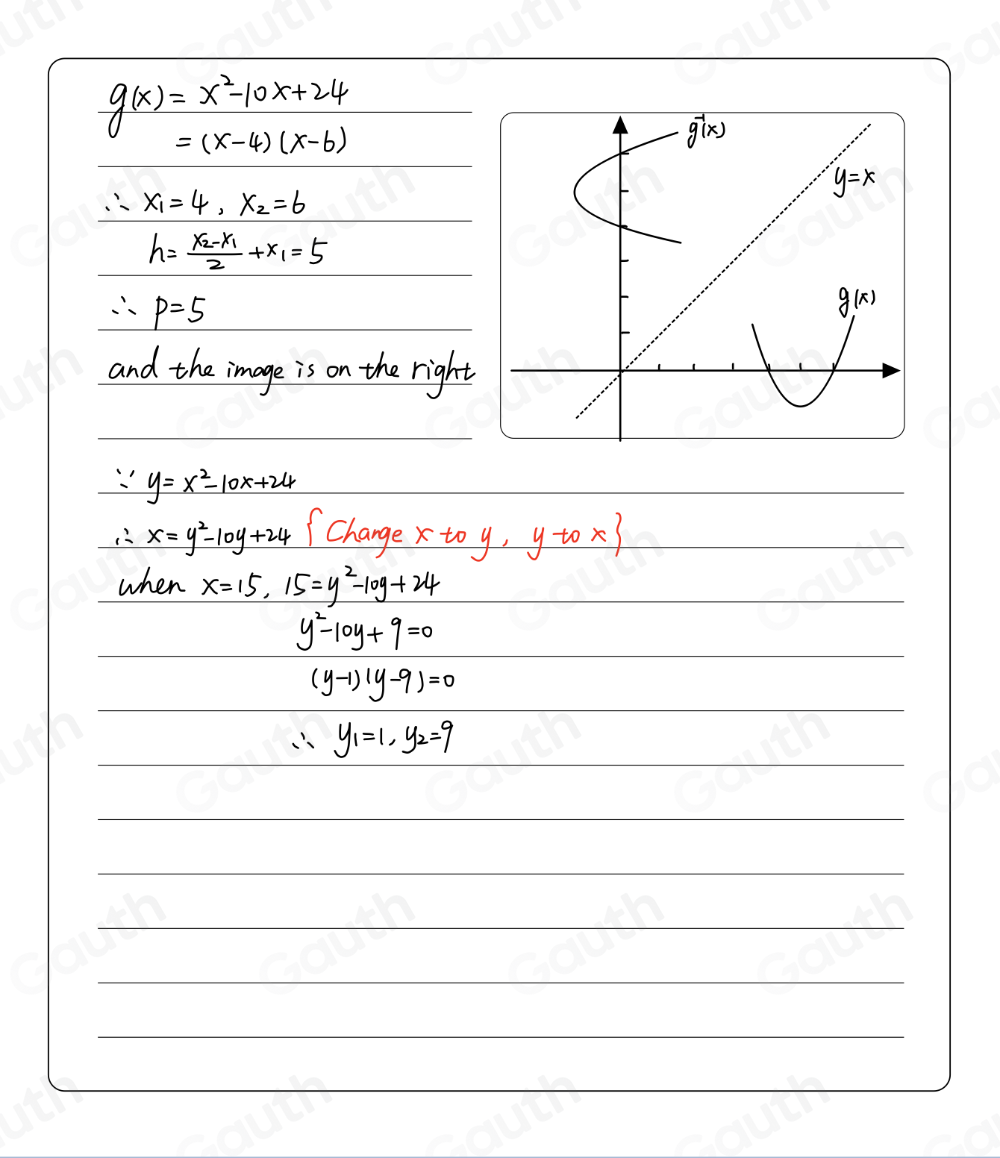 g(x) = x²-10x+24
= (x-4)(x-6)
∴ x₁=4, x₂=6
h= (x₂-x₁)/2 +x₁=5
∴ p=5
and the image is on the right
g⁻¹(x)
y=x
g(x)
∵ y= x²-10x+24
∴ x=y²-10y+24 {Change x to y, y to x}
when x=15, 15=y²-10y+24
y²-10y+9=0
(y-1)(y-9)=0
∴ y₁=1, y₂=9
Gauth